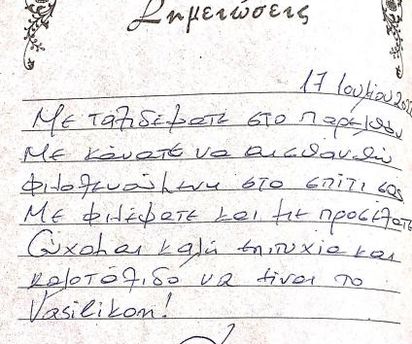 Σημειώσεις
17 Ιουλίου
Με ταξιδέψατε στο παρελθόν
Με κάνατε να αισθανθώ
φιλοξενούμενη στο σπίτι σας
Με φιλέψατε και με προσέξατε
Εύχομαι καλή επιτυχία και
καλοτάξιδο να είναι το
Vasilikon!